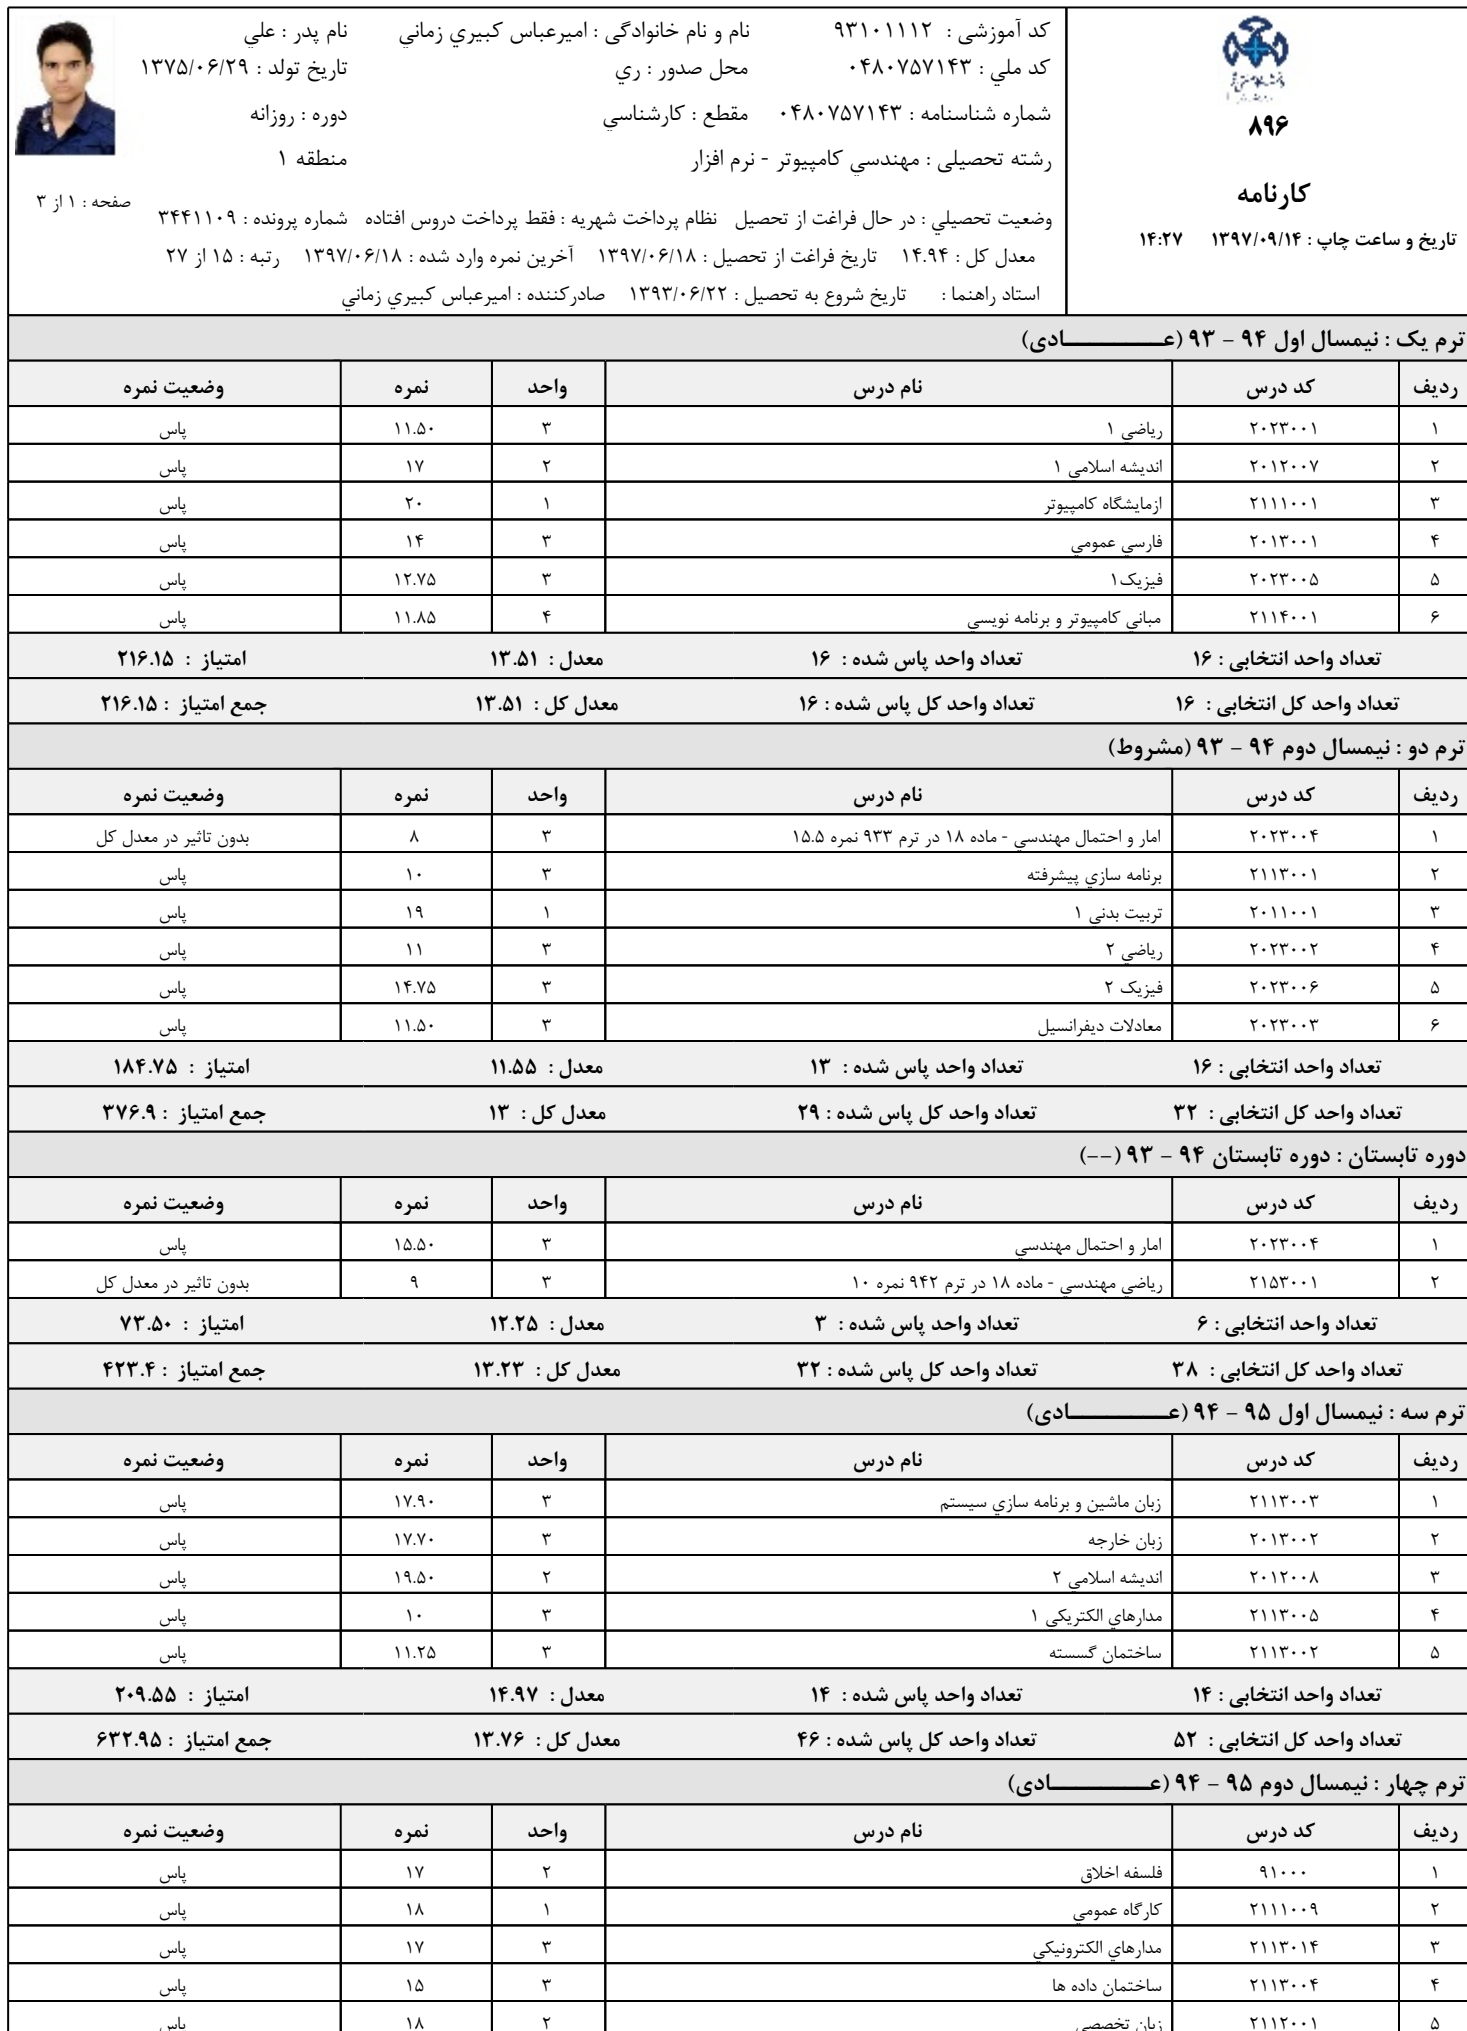 ۸۹۶
کارنامه
تاریخ و ساعت چاپ : ۱۳۹۷/۰۹/۱۴ ۱۴:۲۷
کد آموزشی : ۹۳۱۰۱۱۱۲ نام و نام خانوادگی : امیرعباس کبيري زماني نام پدر : علي
کد ملي : ۰۴۸۰۷۵۷۱۴۳ محل صدور : ري تاریخ تولد : ۱۳۷۵/۰۶/۲۹
شماره شناسنامه : ۰۴۸۰۷۵۷۱۴۳ مقطع : کارشناسي دوره : روزانه
رشته تحصیلی : مهندسي کامپیوتر - نرم افزار منطقه ۱
صفحه : ۱ از ۳
وضعیت تحصیلي : در حال فراغت از تحصیل نظام پرداخت شهریه : فقط پرداخت دروس افتاده شماره پرونده : ۳۴۴۱۱۰۹
معدل کل : ۱۴.۹۴ تاریخ فراغت از تحصیل : ۱۳۹۷/۰۶/۱۸ آخرین نمره وارد شده : ۱۳۹۷/۰۶/۱۸ رتبه : ۱۵ از ۲۷
استاد راهنما : تاریخ شروع به تحصیل : ۱۳۹۳/۰۶/۲۲ صادرکننده : امیرعباس کبيري زماني
ترم یک : نیمسال اول ۹۴ - ۹۳ (عـــــــــــــادی)
ردیف کد درس نام درس واحد نمره وضعیت نمره
۱ ۲۰۲۳۰۰۱ ریاضي ۱ ۳ ۱۱.۵۰ پاس
۲ ۲۰۱۲۰۰۷ اندیشه اسلامي ۱ ۲ ۱۷ پاس
۳ ۲۱۱۱۰۰۱ ازمایشگاه کامپیوتر ۱ ۲۰ پاس
۴ ۲۰۱۳۰۰۱ فارسي عمومي ۳ ۱۴ پاس
۵ ۲۰۲۳۰۰۵ فیزیک۱ ۳ ۱۲.۷۵ پاس
۶ ۲۱۱۴۰۰۱ مباني کامپیوتر و برنامه نویسي ۴ ۱۱.۸۵ پاس
تعداد واحد انتخابی : ۱۶ تعداد واحد پاس شده : ۱۶ معدل : ۱۳.۵۱ امتیاز : ۲۱۶.۱۵
تعداد واحد کل انتخابی : ۱۶ تعداد واحد کل پاس شده : ۱۶ معدل کل : ۱۳.۵۱ جمع امتیاز : ۲۱۶.۱۵
ترم دو : نیمسال دوم ۹۴ - ۹۳ (مشروط)
ردیف کد درس نام درس واحد نمره وضعیت نمره
۱ ۲۰۲۳۰۰۴ امار و احتمال مهندسي - ماده ۱۸ در ترم ۹۳۳ نمره ۱۵.۵ ۳ ۸ بدون تاثیر در معدل کل
۲ ۲۱۱۳۰۰۱ برنامه سازي پیشرفته ۳ ۱۰ پاس
۳ ۲۰۱۱۰۰۱ تربیت بدني ۱ ۱ ۱۹ پاس
۴ ۲۰۲۳۰۰۲ ریاضي ۲ ۳ ۱۱ پاس
۵ ۲۰۲۳۰۰۶ فیزیک ۲ ۳ ۱۴.۷۵ پاس
۶ ۲۰۲۳۰۰۳ معادلات دیفرانسیل ۳ ۱۱.۵۰ پاس
تعداد واحد انتخابی : ۱۶ تعداد واحد پاس شده : ۱۳ معدل : ۱۱.۵۵ امتیاز : ۱۸۴.۷۵
تعداد واحد کل انتخابی : ۳۲ تعداد واحد کل پاس شده : ۲۹ معدل کل : ۱۳ جمع امتیاز : ۳۷۶.۹
دوره تابستان : دوره تابستان ۹۴ - ۹۳ (--)
ردیف کد درس نام درس واحد نمره وضعیت نمره
۱ ۲۰۲۳۰۰۴ امار و احتمال مهندسي ۳ ۱۵.۵۰ پاس
۲ ۲۱۵۳۰۰۱ ریاضي مهندسي - ماده ۱۸ در ترم ۹۴۲ نمره ۱۰ ۳ ۹ بدون تاثیر در معدل کل
تعداد واحد انتخابی : ۶ تعداد واحد پاس شده : ۳ معدل : ۱۲.۲۵ امتیاز : ۷۳.۵۰
تعداد واحد کل انتخابی : ۳۸ تعداد واحد کل پاس شده : ۳۲ معدل کل : ۱۳.۲۳ جمع امتیاز : ۴۲۳.۴
ترم سه : نیمسال اول ۹۵ - ۹۴ (عـــــــــــــادی)
ردیف کد درس نام درس واحد نمره وضعیت نمره
۱ ۲۱۱۳۰۰۳ زبان ماشین و برنامه سازي سیستم ۳ ۱۷.۹۰ پاس
۲ ۲۰۱۳۰۰۲ زبان خارجه ۳ ۱۷.۷۰ پاس
۳ ۲۰۱۲۰۰۸ اندیشه اسلامي ۲ ۲ ۱۹.۵۰ پاس
۴ ۲۱۱۳۰۰۵ مدارهاي الکتریکي ۱ ۳ ۱۰ پاس
۵ ۲۱۱۳۰۰۲ ساختمان گسسته ۳ ۱۱.۲۵ پاس
تعداد واحد انتخابی : ۱۴ تعداد واحد پاس شده : ۱۴ معدل : ۱۴.۹۷ امتیاز : ۲۰۹.۵۵
تعداد واحد کل انتخابی : ۵۲ تعداد واحد کل پاس شده : ۴۶ معدل کل : ۱۳.۷۶ جمع امتیاز : ۶۳۲.۹۵
ترم چهار : نیمسال دوم ۹۵ - ۹۴ (عـــــــــــــادی)
ردیف کد درس نام درس واحد نمره وضعیت نمره
۱ ۹۱۰۰۰ فلسفه اخلاق ۲ ۱۷ پاس
۲ ۲۱۱۱۰۰۹ کارگاه عمومي ۱ ۱۸ پاس
۳ ۲۱۱۳۰۱۴ مدارهاي الکترونیکي ۳ ۱۷ پاس
۴ ۲۱۱۳۰۰۴ ساختمان داده ها ۳ ۱۵ پاس
۵ ۲۱۱۲۰۰۱ زبان تخصصي ۲ ۱۸ پاس